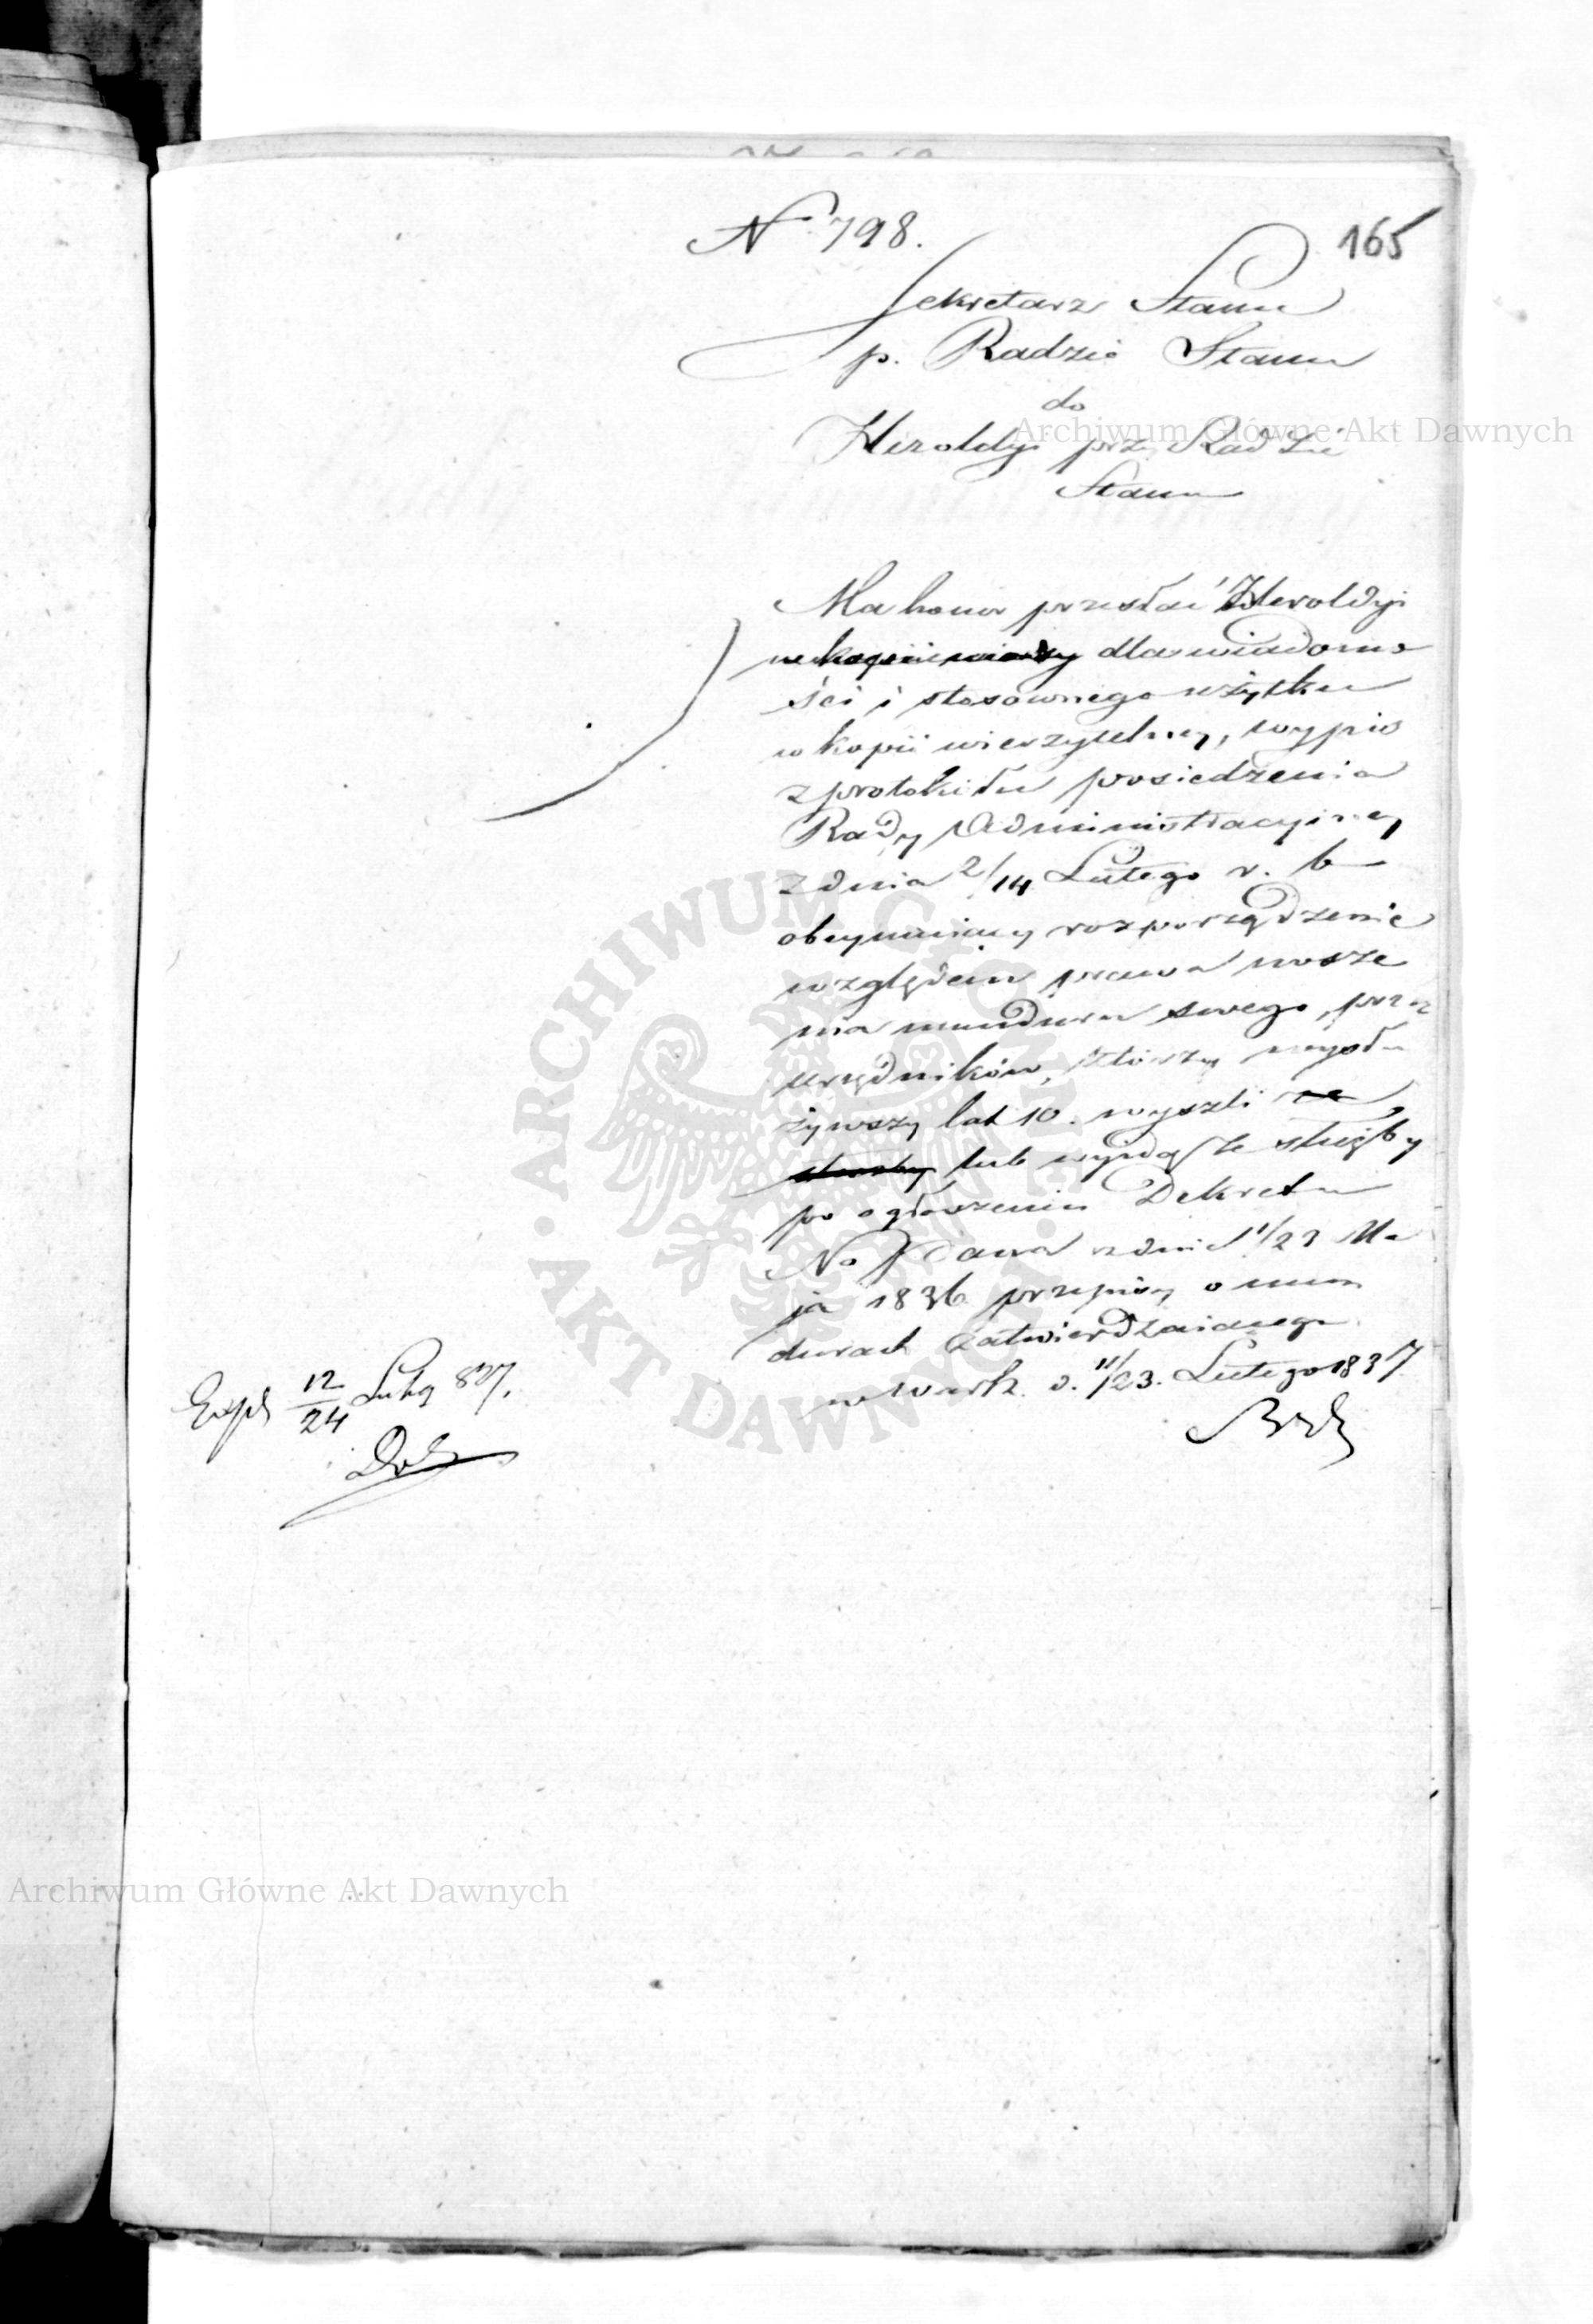 165
N° 798.
Sekretarz Stanu
p. Radzie Stanu
do
Heroldyi przy Radzie
Stanu
Ma honor przesłać Heroldyi
dla wiadomo
ści i stosownego użytku
w kopii wierzytelney, wypis
z protokułu posiedzenia
Rady Administracyiney
z dnia 2/14 Lutego r. b.
obeymuiący rozporządzenie
względem prawa nosze
nia munduru swego, przez
urzędników, którzy wysłu
żywszy lat 10. wyszli ze
służby lub wyidą ze służby
po ogłoszeniu Dekretu
No Pana z dnia 11/23 Ma
ja 1836 przepisy o mun
durach zatwierdzaiącego
w Warsz. d. 11/23. Lutego 1837
Expd 12/24 Lutego 837.
Archiwum Główne Akt Dawnych
ARCHIWUM GŁÓWNE AKT DAWNYCH
AD
Archiwum Główne Akt Dawnych